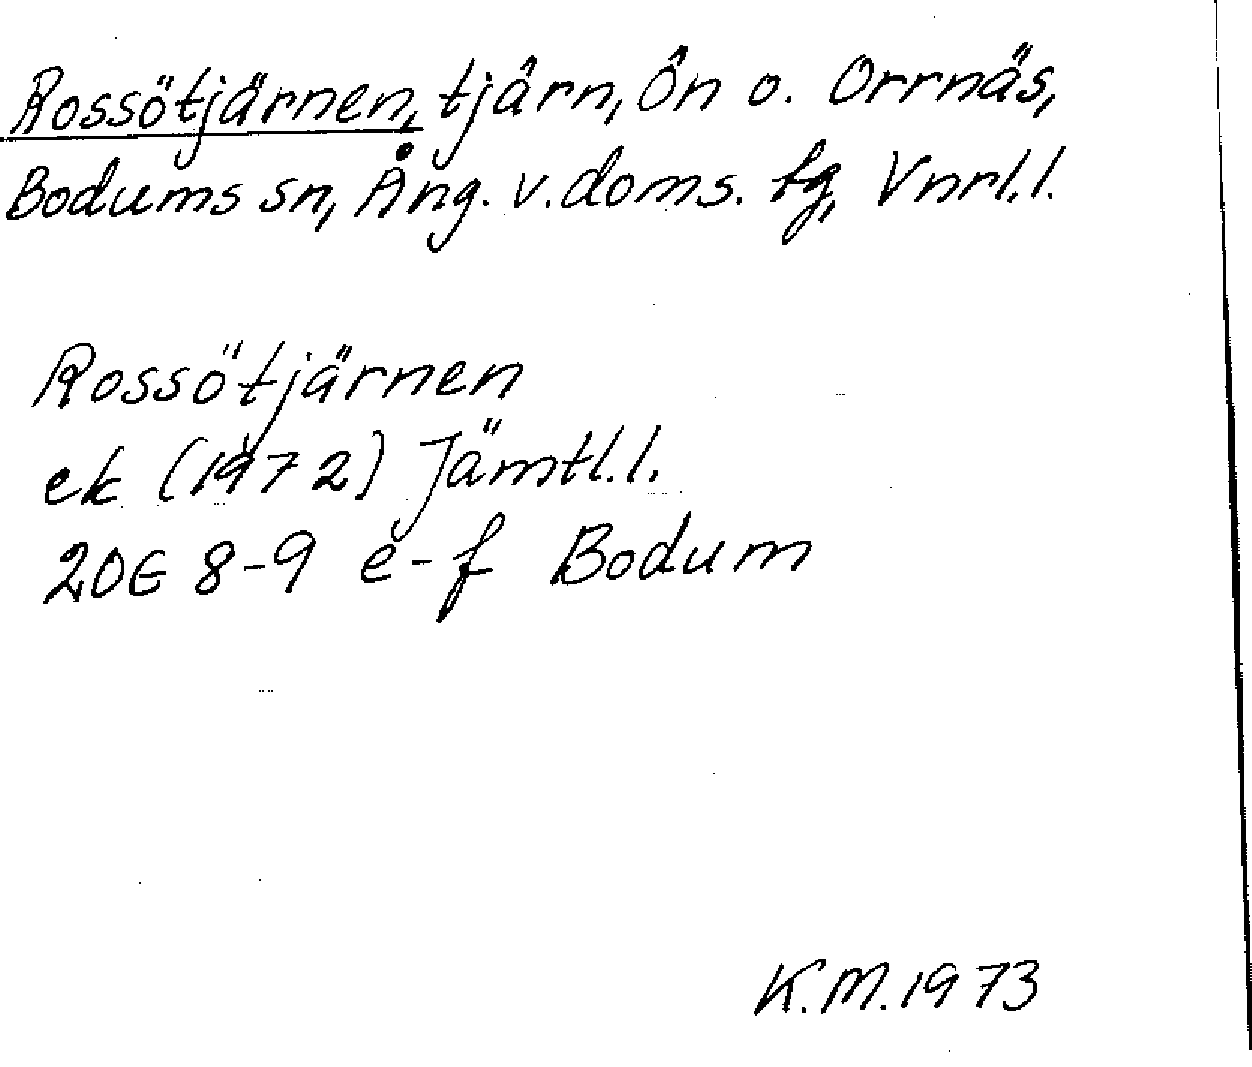 Rossötjärnen, tjärn, Ön o. Orrnäs,
Bodums sn, Ång. v. doms. tg, Vnrl. l.
Rossötjärnen
ek (1972) Jämtl. l.
20E 8-9 e-f Bodum
K.M. 1973